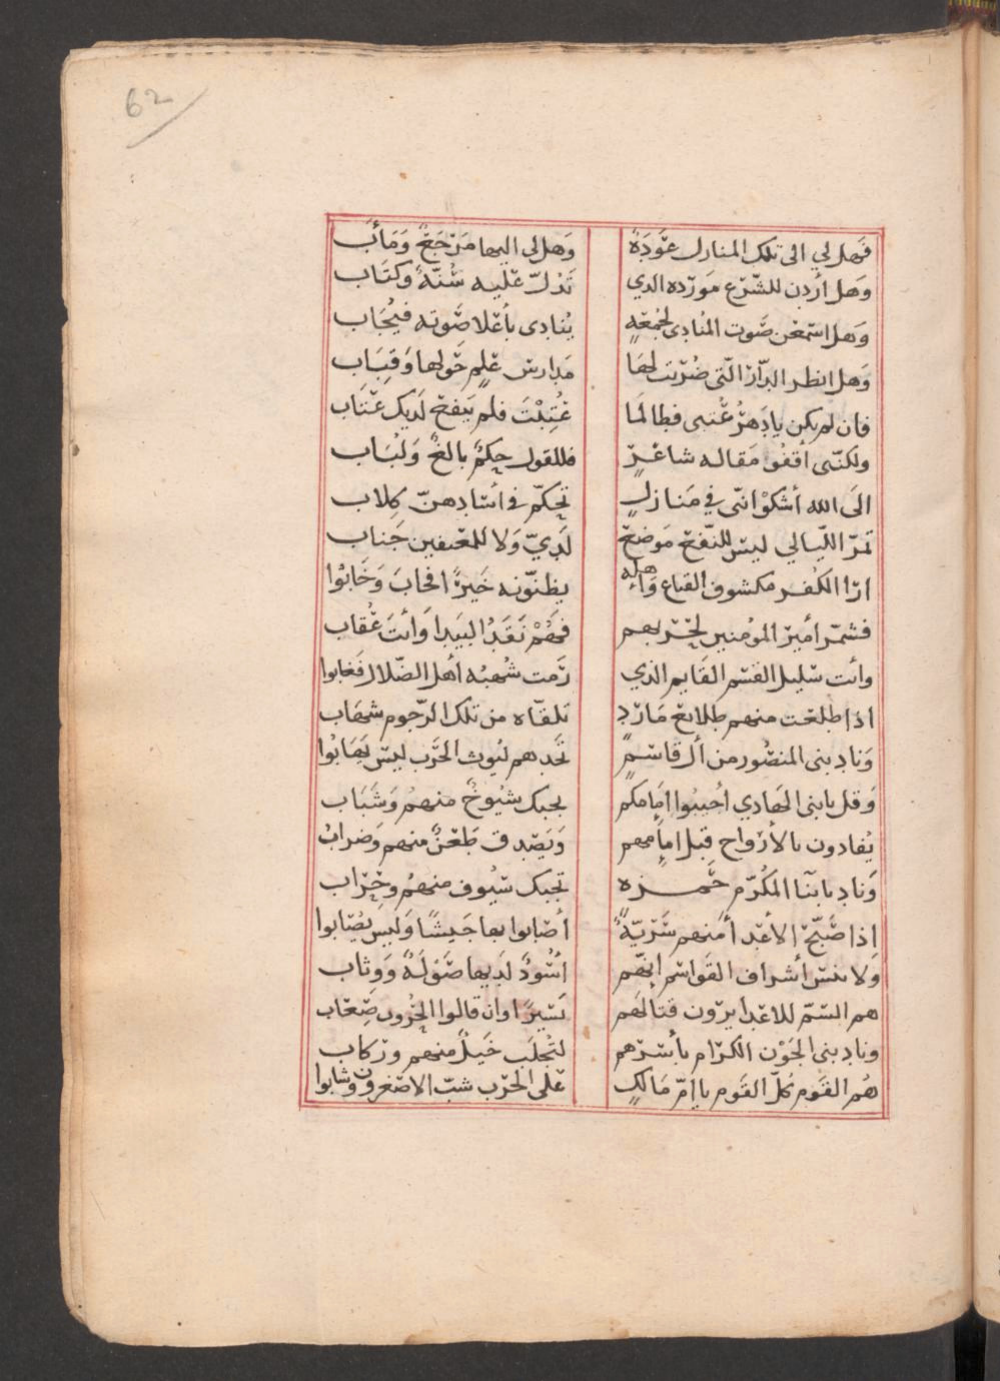 62
فَهل لي الى تلك المنازل عَوْدَةٌ وَهل لي اليها مَرْجَعٌ وَمَآبُ
وَهل أردن للشّرْع مَوْرده الذي تَدُلّ عَلَيه سُنّةٌ وكتَابُ
وَهل اسْمَعَن صَوت المُنادِى لجُمْعَةٍ يُنَادِى بأعْلا صَوته فيُجَابُ
وَهل انظر الدّارَ الّتى ضُرّبَت لهَا مَدارسُ عِلمٍ حَولها وَقِبَاب
فان لم يكن يا دَهْرُ عُتبى فطالمَا عُتِبْتَ فلم يَنفعْ لَديك عتَاب
ولكنّنى أقفُو مَقاله شاعرٍ فللقول حِكمٌ بالغٌ وَلُبَاب
الَى الله أشكوْ انّنى في مَنازلٍ تحكمّ في أسَادهنّ كِلاب
تمرّ اللّيالي ليسَ للنّفع مَوضعٌ لَدِيّ وَلا للمعتفين جَناب
ارَا الكُفر مكشوف القناع وَاهله يظنّونه خَيرًا فخابَ وَخَابُوا
فشمّر أميرَ المؤمنين لحَرْبهم فَهُمْ نَقَدُ البَيدا وَأنتَ عُقاب
وأنت سَليل القسم القَايم الذي رَمت شُهبُه أهل الضّلال فغابوا
اذا طلعَت منهم طلايع مَارِدٍ تلقّاه من تلك الرّجوم شهَاب
وَنادِ بنى المنصُور من أل قاسمٍ تجَدهم ليُوث الحَرب ليسَ يَهَابُوا
وَقل يا بنى الهَادي أجيبُوا امَامكم يجبك شيُوخٌ منهمُ وَشَبَاب
يُفادون بالأرْواح قبل امامهم وَيَصْدق طَعْنٌ منهم وَضرابُ
وَنادِ بابنَا المكرّم حَمزه تجبك سيُوف منهمُ وحِرَاب
إذا صَبّحَ الأعْدا منهم سَرْيّةٌ أصَابوا بها جَيشًا وَليسَ يُصَابوا
وَلا تنسَ أشراف القَواسم انّهم أسُودٌ لَديها صَوْلَةٌ وَوِثاب
هم السّم للاعْدا يرَون قتالهَم يَسيرًا وان قالوا الحُرُوب صِعَاب
ونادِ بنى الجَوْن الكرَام بأسْرهم لتُجلَب خَيلٌ منهم وركاب
هُم القَوم كلّ القَوم يا امّ مَالكٍ عَلى الحَرْب شبّ الاصْغرون وشابوا